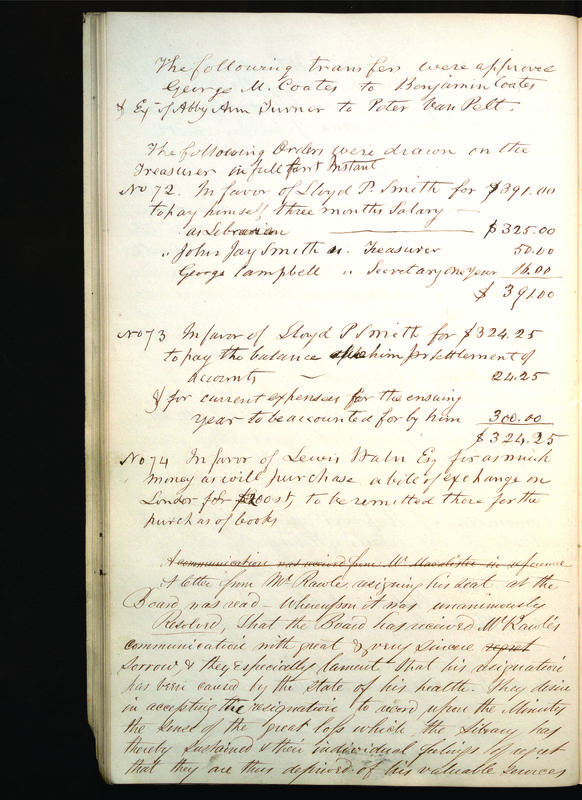 The following transfers were approved
George M. Coates to Benjamin Coates
& Ex. of Abby Ann Turner to Peter Van Pelt.
The following Orders were drawn on the
Treasurer in full for Instant
No 72. In favor of Lloyd P. Smith for $391.00
to pay himself three months Salary —
as Librarian — $325.00
" John Jay Smith as Treasurer 50.00
George Campbell " Secretary one year 16.00
$ 391.00
No 73 In favor of Lloyd P Smith for $324.25
to pay the balance him for settlement of
accounts — 24.25
& for current expenses for the ensuing
year to be accounted for by him 300.00
$324.25
No 74 In favor of Lewis Esq for as much
money as will purchase a bill of exchange on
London for £200 st, to be remitted there for the
purchas of books
A communication was received from Mr Macalister in reference
A letter from Mr Rawle, resigning his seat at the
Board, was read – Whereupon it was unanimously
Resolved, That the Board has received Mr Rawle's
communication with great & very sincere regret
sorrow, & they especially lament that his resignation
has been caused by the state of his health. They desire
in accepting the resignation to record upon the Minutes
the sense of the great loss which the Library has
thereby sustained & their individual feelings of regret
that they are thus deprived of his valuable services